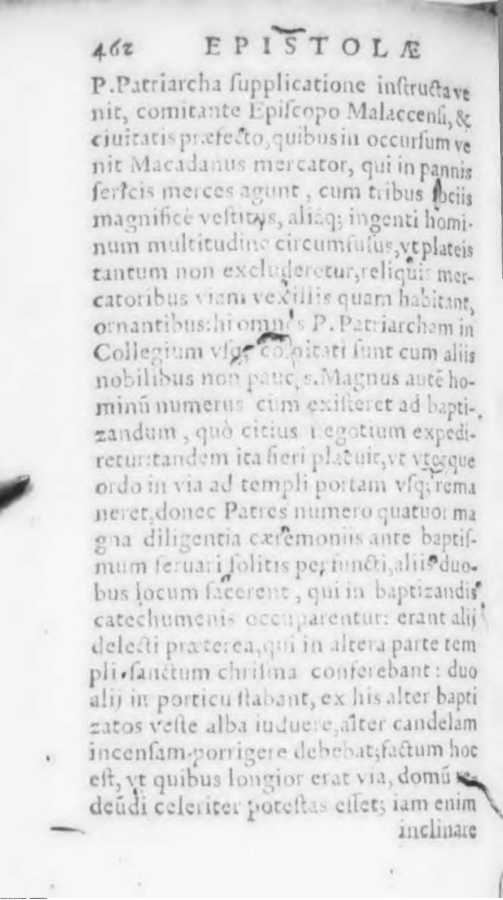 462 EPISTOLÆ
P. Patriarcha ſupplicatione inſtructa ve
nit, comitante Epiſcopo Malaccenſi, &
ciuitatis præfecto, quibus in occurſum ve
nit Macadanus mercator, qui in pannis
ſericis merces agunt, cum tribus ſociis
magnificè veſtitus, aliáq; ingenti homi-
num multitudine circumfuſus, vt plateis
tantum non excluderetur, reliquis mer-
catoribus viam vexillis quam habitant,
ornantibus: hi omnes P. Patriarcham in
Collegium vſq; comitati ſunt cum aliis
nobilibus non paucis. Magnus autē ho-
minū numerus cùm exiſteret ad bapti-
zandum, quò citius negotium expedi-
retur: tandem ita fieri placuit, vt vterque
ordo in via ad templi portam vſq; rema
neret, donec Patres numero quatuor ma
gna diligentia cæremoniis ante baptiſ-
mum ſeruari ſolitis perfuncti, aliis duo-
bus locum facerent, qui in baptizandis
catechumenis occuparentur: erant alij
delecti præterea, qui in altera parte tem
pli ſanctum chriſma conferebant: duo
alij in porticu ſtabant, ex his alter bapti
zatos veſte alba induere, alter candelam
incenſam porrigere debebat; factum hoc
eſt, vt quibus longior erat via, domū re-
deūdi celeriter poteſtas eſſet; iam enim
inclinare